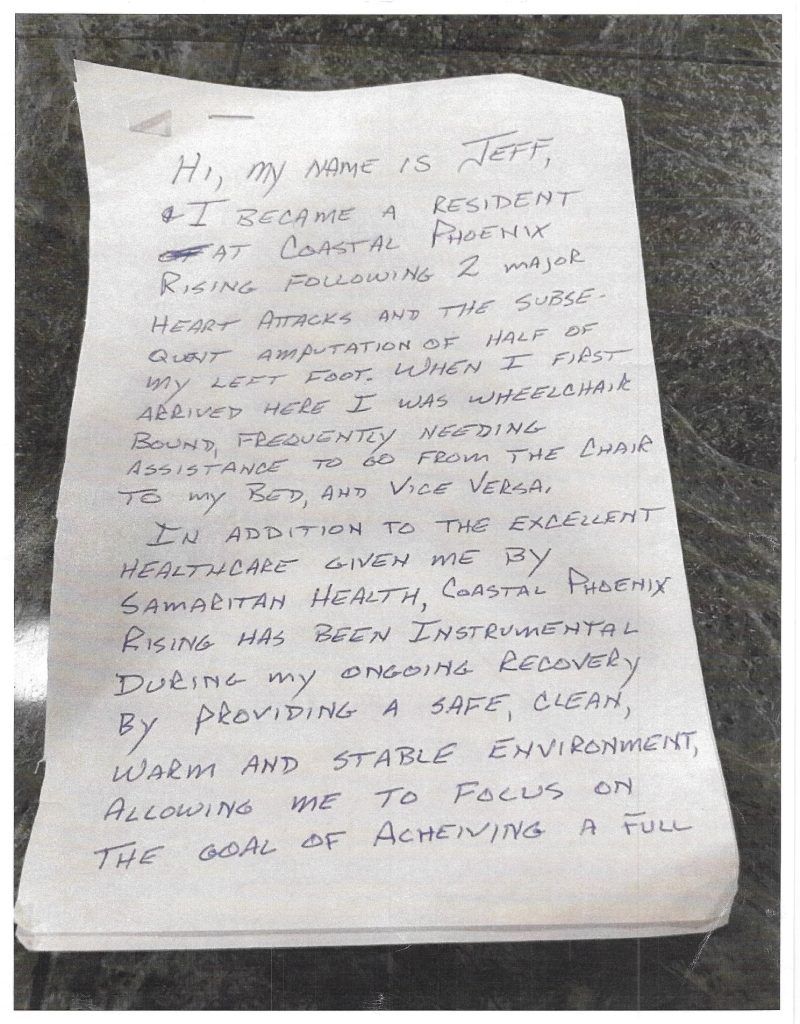 Hi, my name is Jeff,
& I became a resident
at Coastal Phoenix
Rising following 2 major
heart attacks and the subse-
quent amputation of half of
my left foot. When I first
arrived here I was wheelchair
bound, frequently needing
assistance to go from the chair
to my bed, and vice versa.
In addition to the excellent
healthcare given me by
Samaritan Health, Coastal Phoenix
Rising has been instrumental
during my ongoing recovery
by providing a safe, clean,
warm and stable environment,
allowing me to focus on
the goal of acheiving a full